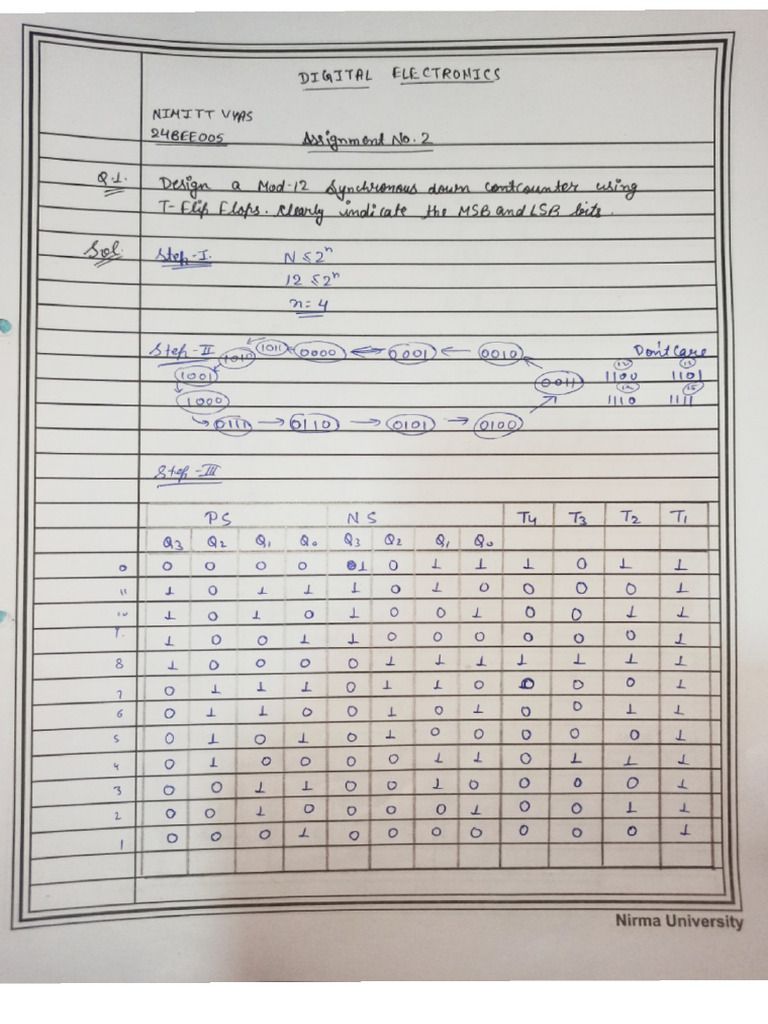 DIGITAL ELECTRONICS
NIMITT VYAS
24BEE005 Assignment No. 2
Q.1. Design a Mod-12 Synchronous down contcounter using
T-Flip Flops. Clearly indicate the MSB and LSB bits.
Sol. Step-I. N ≤ 2ⁿ
12 ≤ 2ⁿ
n = 4
Step-II 1010 1011 ← 0000 ← 0001 ← 0010 Don't Care
1001 0011 12 1100 13 1101
1000 14 1110 15 1111
0111 → 0110 → 0101 → 0100
Step-III
PS NS T4 T3 T2 T1
Q3 Q2 Q1 Q0 Q3 Q2 Q1 Q0
0 0 0 0 0 1 0 1 1 1 0 1 1
11 1 0 1 1 1 0 1 0 0 0 0 1
10 1 0 1 0 1 0 0 1 0 0 1 1
9. 1 0 0 1 1 0 0 0 0 0 0 1
8 1 0 0 0 0 1 1 1 1 1 1 1
7 0 1 1 1 0 1 1 0 0 0 0 1
6 0 1 1 0 0 1 0 1 0 0 1 1
5 0 1 0 1 0 1 0 0 0 0 0 1
4 0 1 0 0 0 0 1 1 0 1 1 1
3 0 0 1 1 0 0 1 0 0 0 0 1
2 0 0 1 0 0 0 0 1 0 0 1 1
1 0 0 0 1 0 0 0 0 0 0 0 1
Nirma University